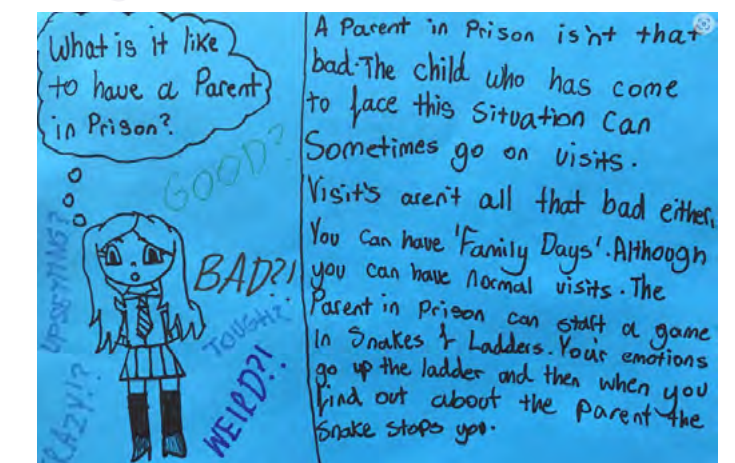 What is it like
to have a Parent
in Prison?
GOOD?
UPSETTING?
BAD?!
TOUGH?
WEIRD?!
CRAZY!?
A Parent in Prison isn't that
bad. The child who has come
to face this Situation Can
Sometimes go on visits.
Visit's aren't all that bad either,
You Can have 'Family Days'. Although
you can have normal visits. The
Parent in prison can start a game
in Snakes & Ladders. Your emotions
go up the ladder and then when you
find out about the Parent the
Snake stops you.